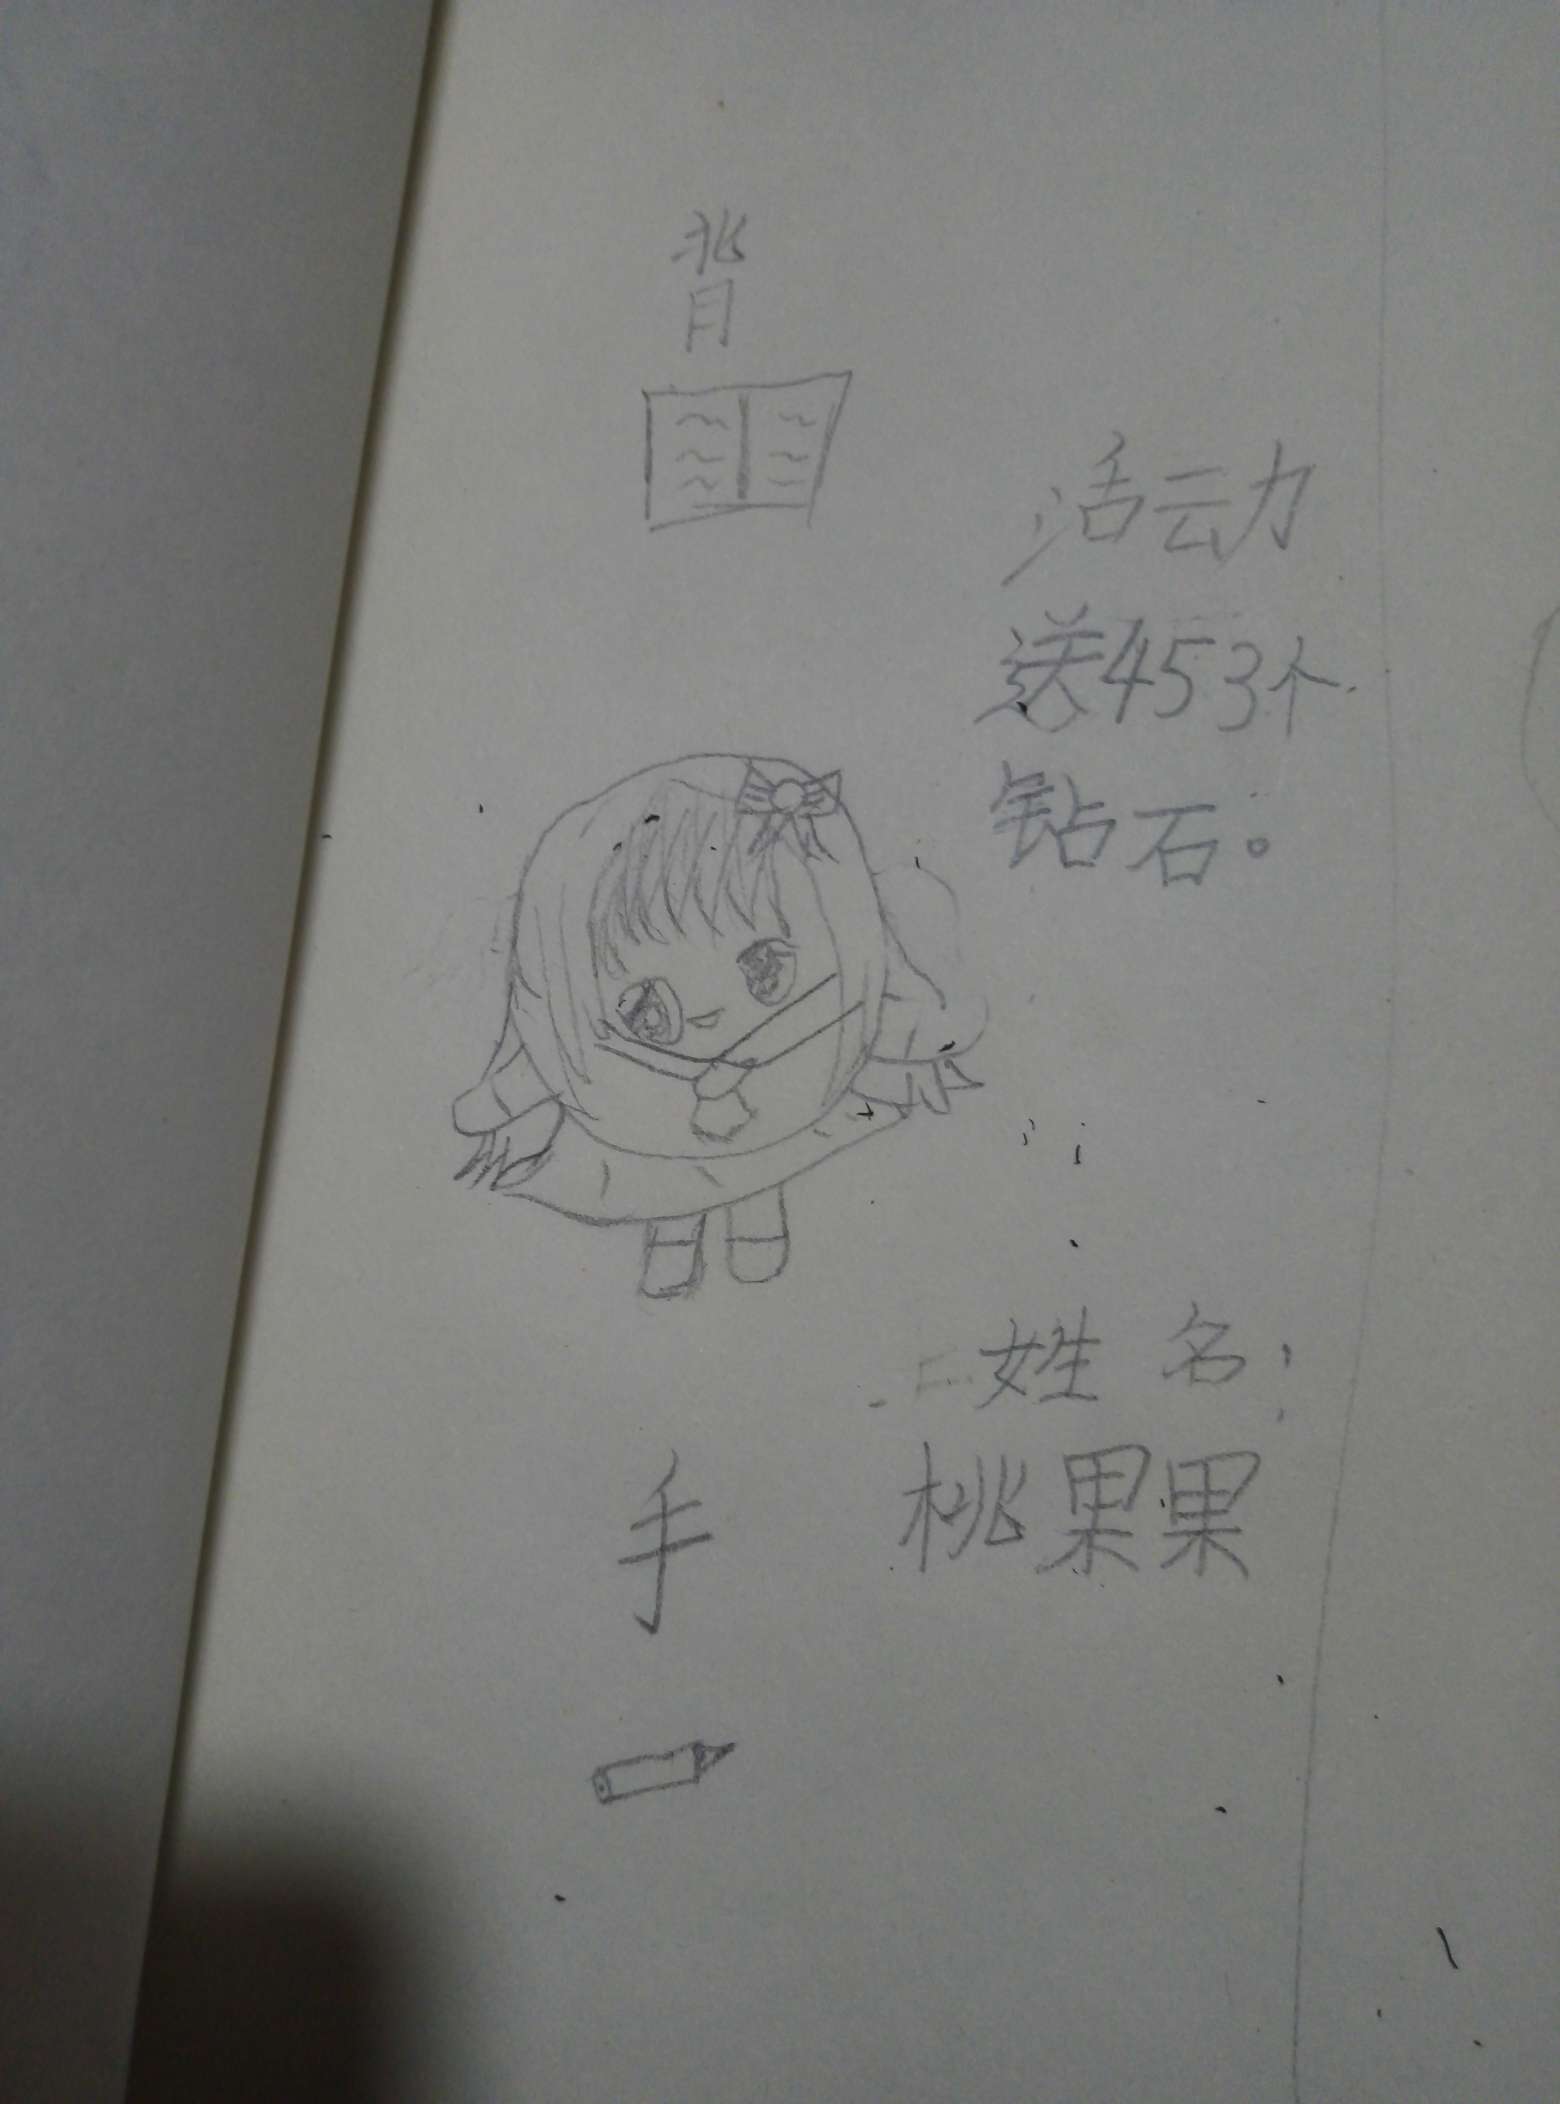 背
活动
送453个
钻石。
姓名:
桃果果
手